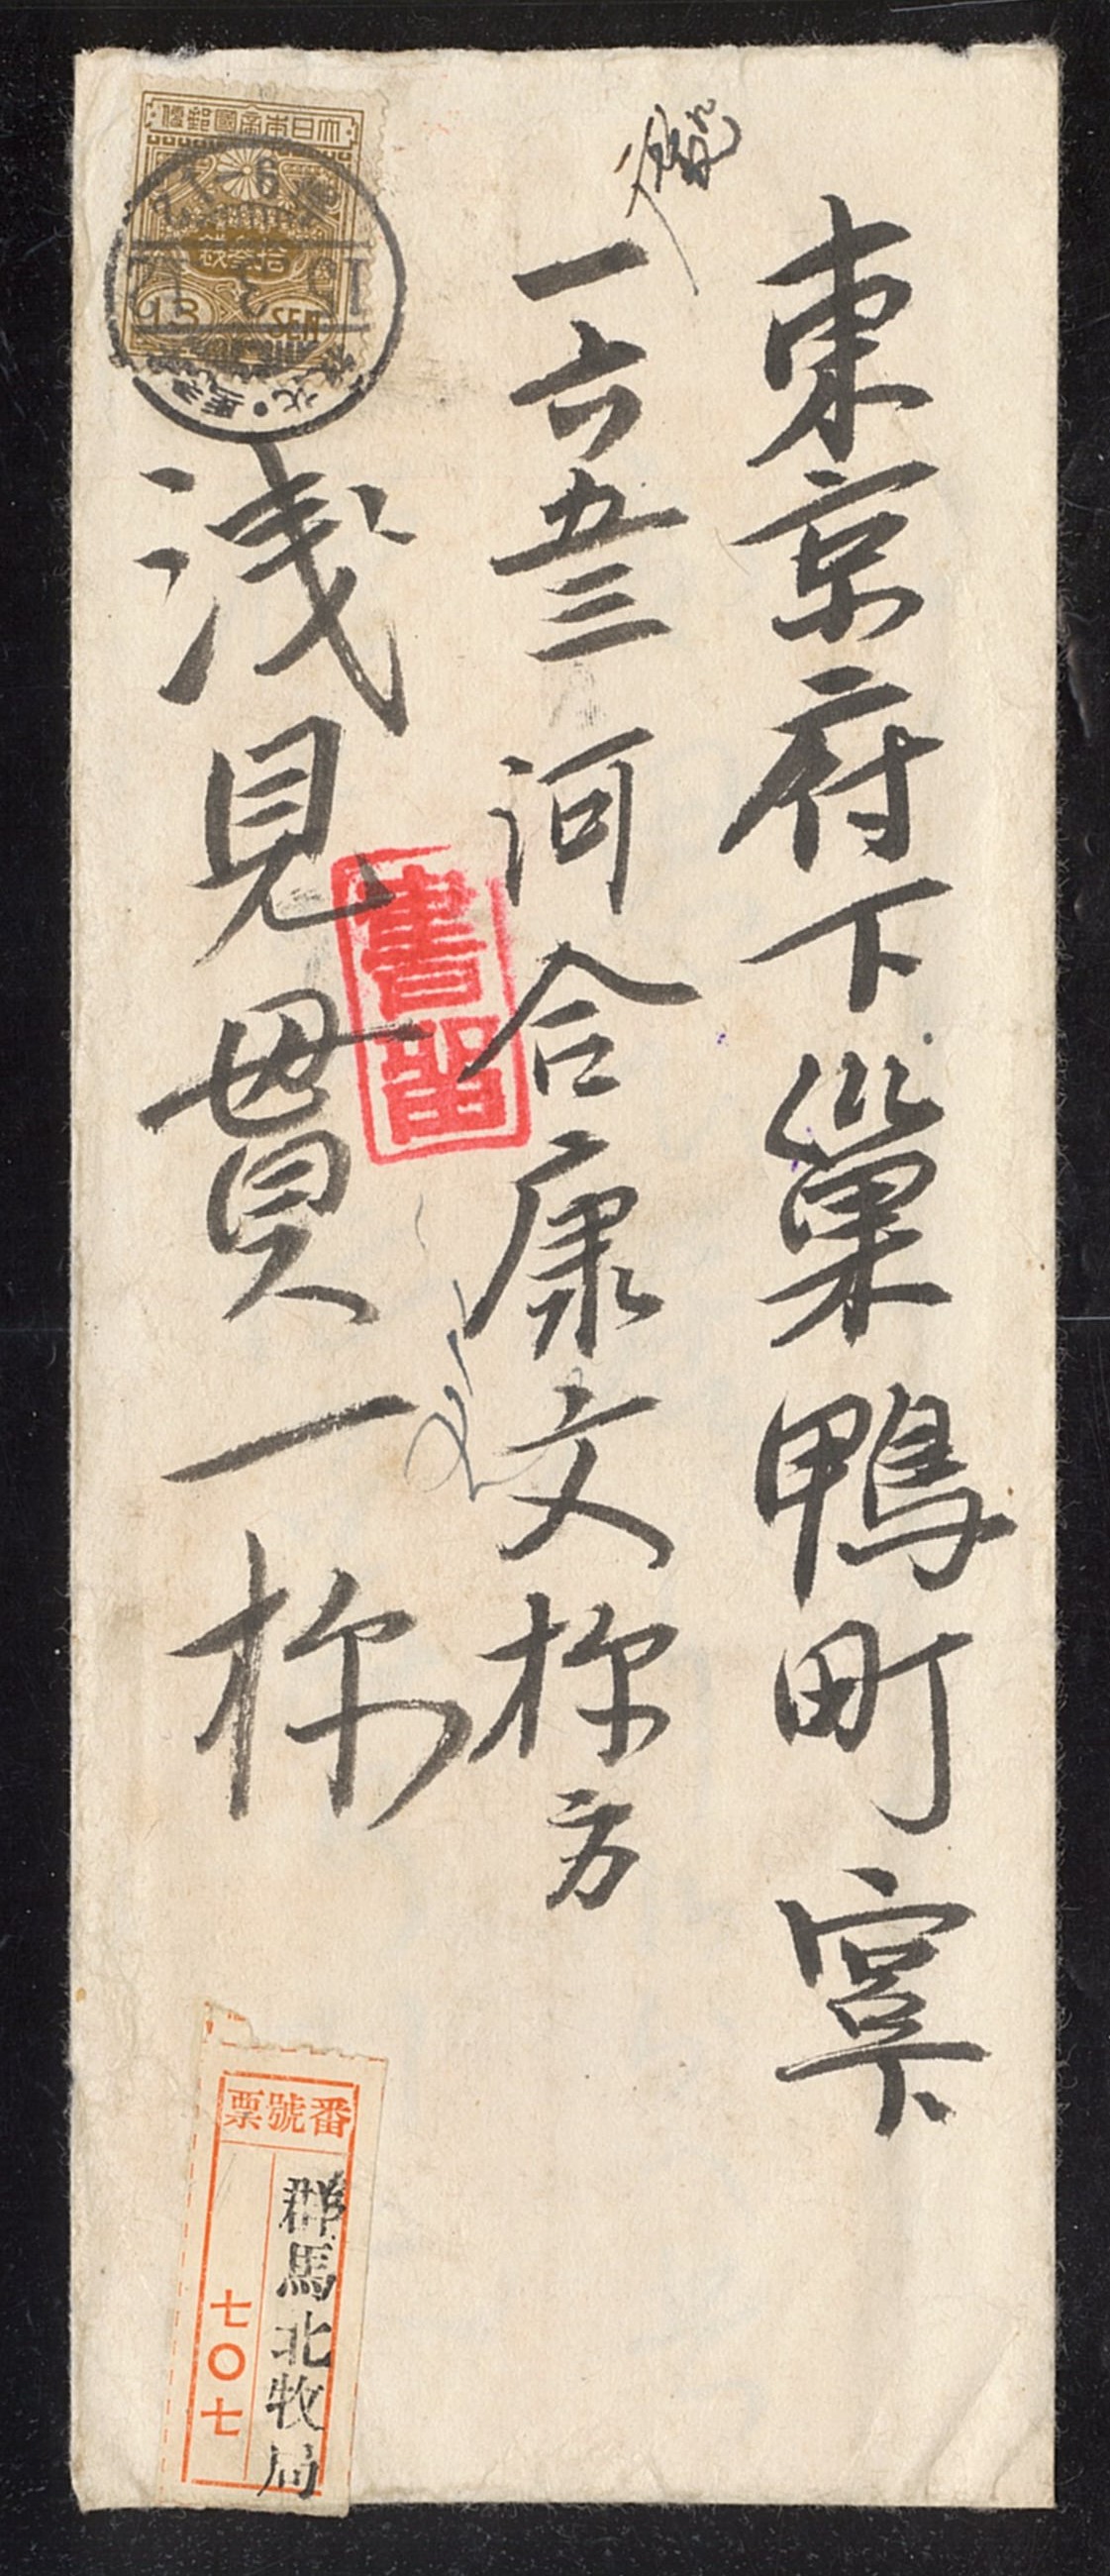 東京府下巣鴨町宮下
一六五三河合康文様方
浅見貫一様
書留
大日本帝國郵便
拾参銭
13 SEN
番號票
群馬北牧局
七〇七